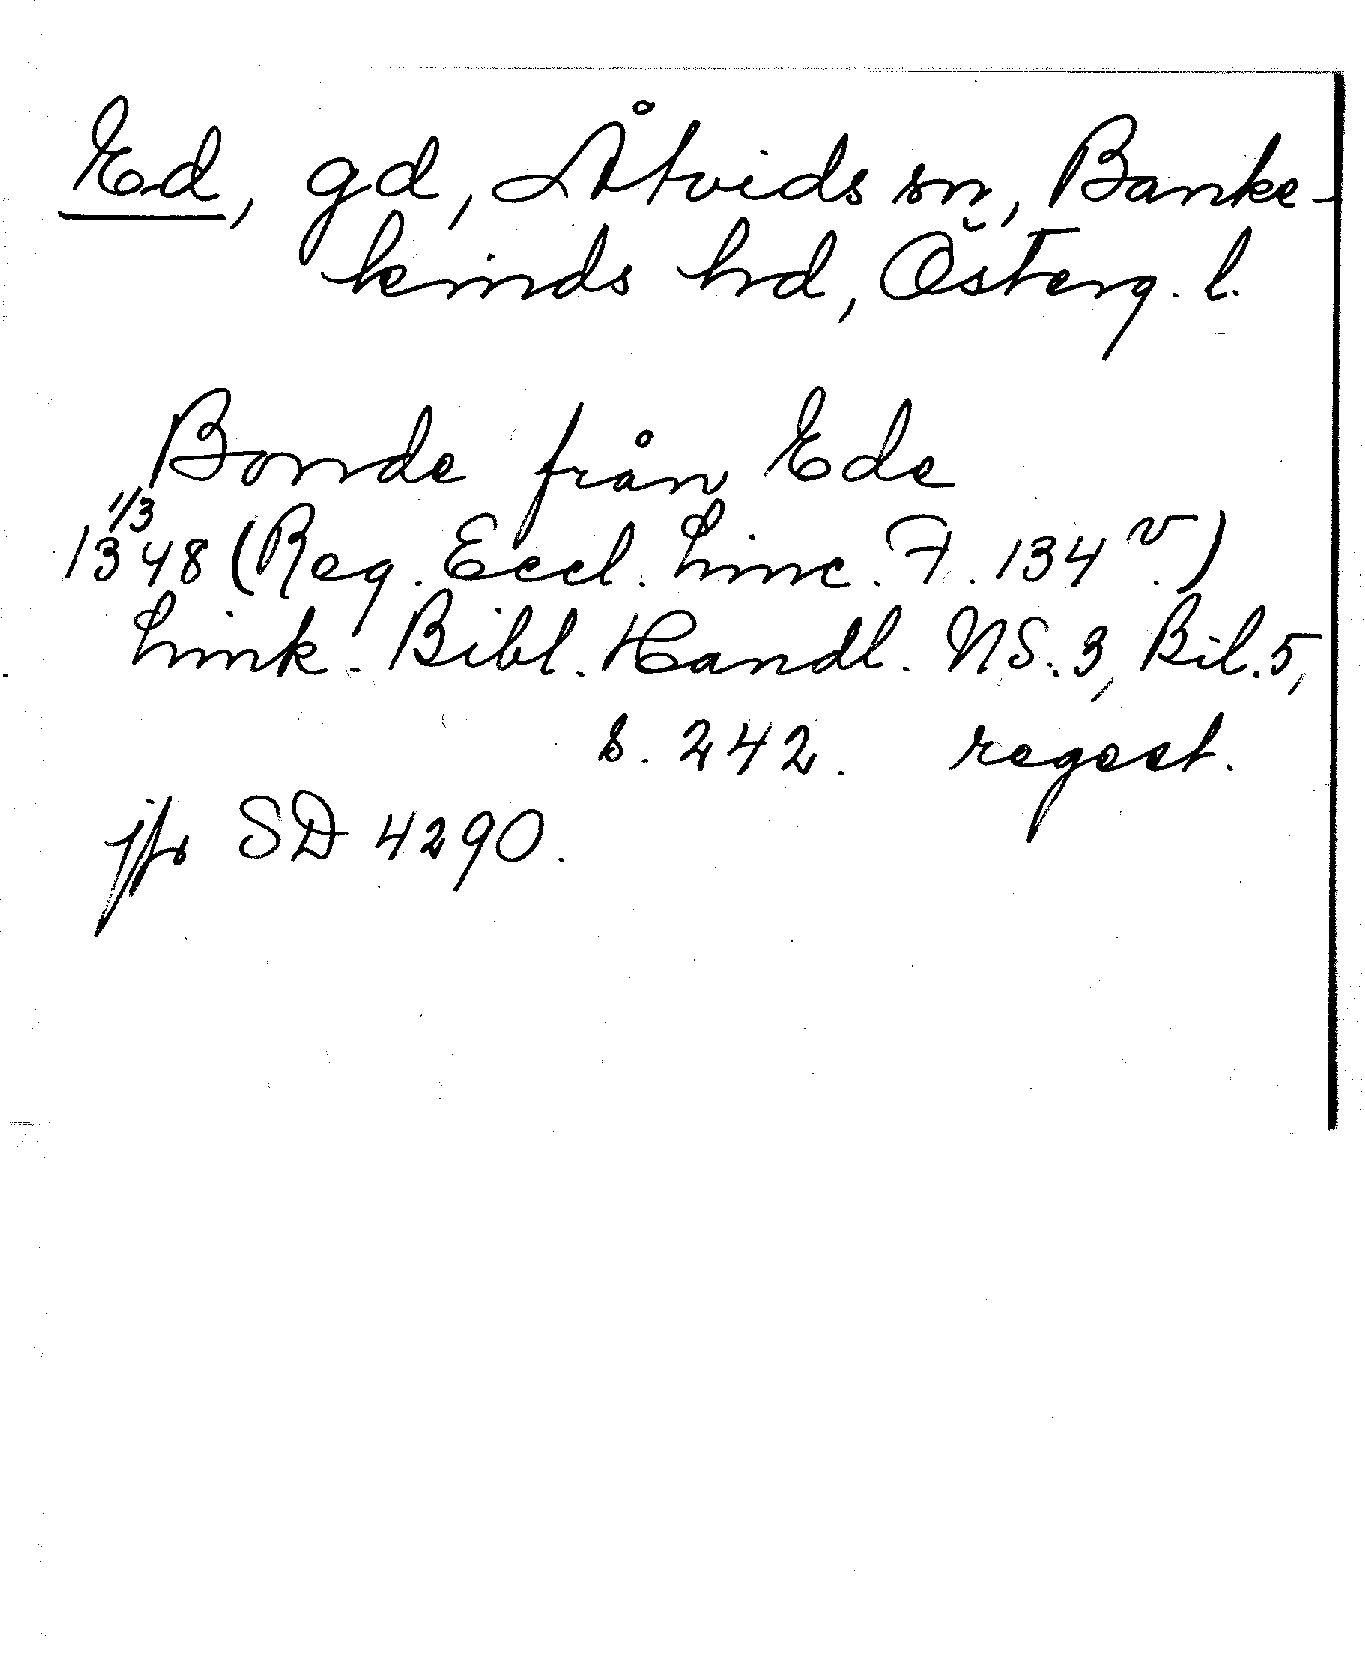 Ed, gd, Åtvids sn, Banke-
kinds hd, Österg. l.
Bonde från Ede
1/3
1348 (Reg. Eccl. Linc. F. 134 v.)
Link. Bibl. Handl. NS. 3, Bil. 5,
s. 242. regest.
jfr SD 4290.